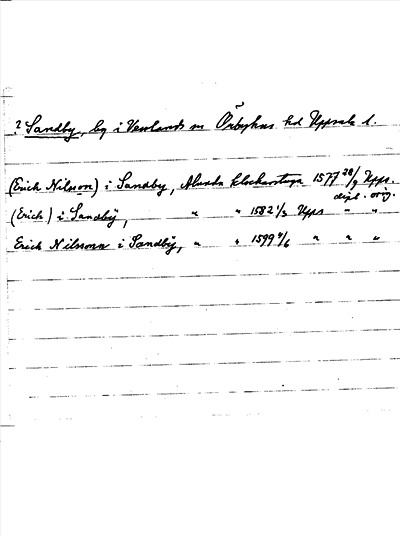 ? Sandby, by i Vendels sn Örbyhus hd Uppsala l.
(Erich Nilsson) i Sandby, Alunda klockarstuga 1577 28/9 Upps.
dipl. orig.
(Erich) i Sandbÿ, " " 1582 1/3 Upps " "
Erich Nilsonn i Sandbÿ, " " 1599 4/6 " " "